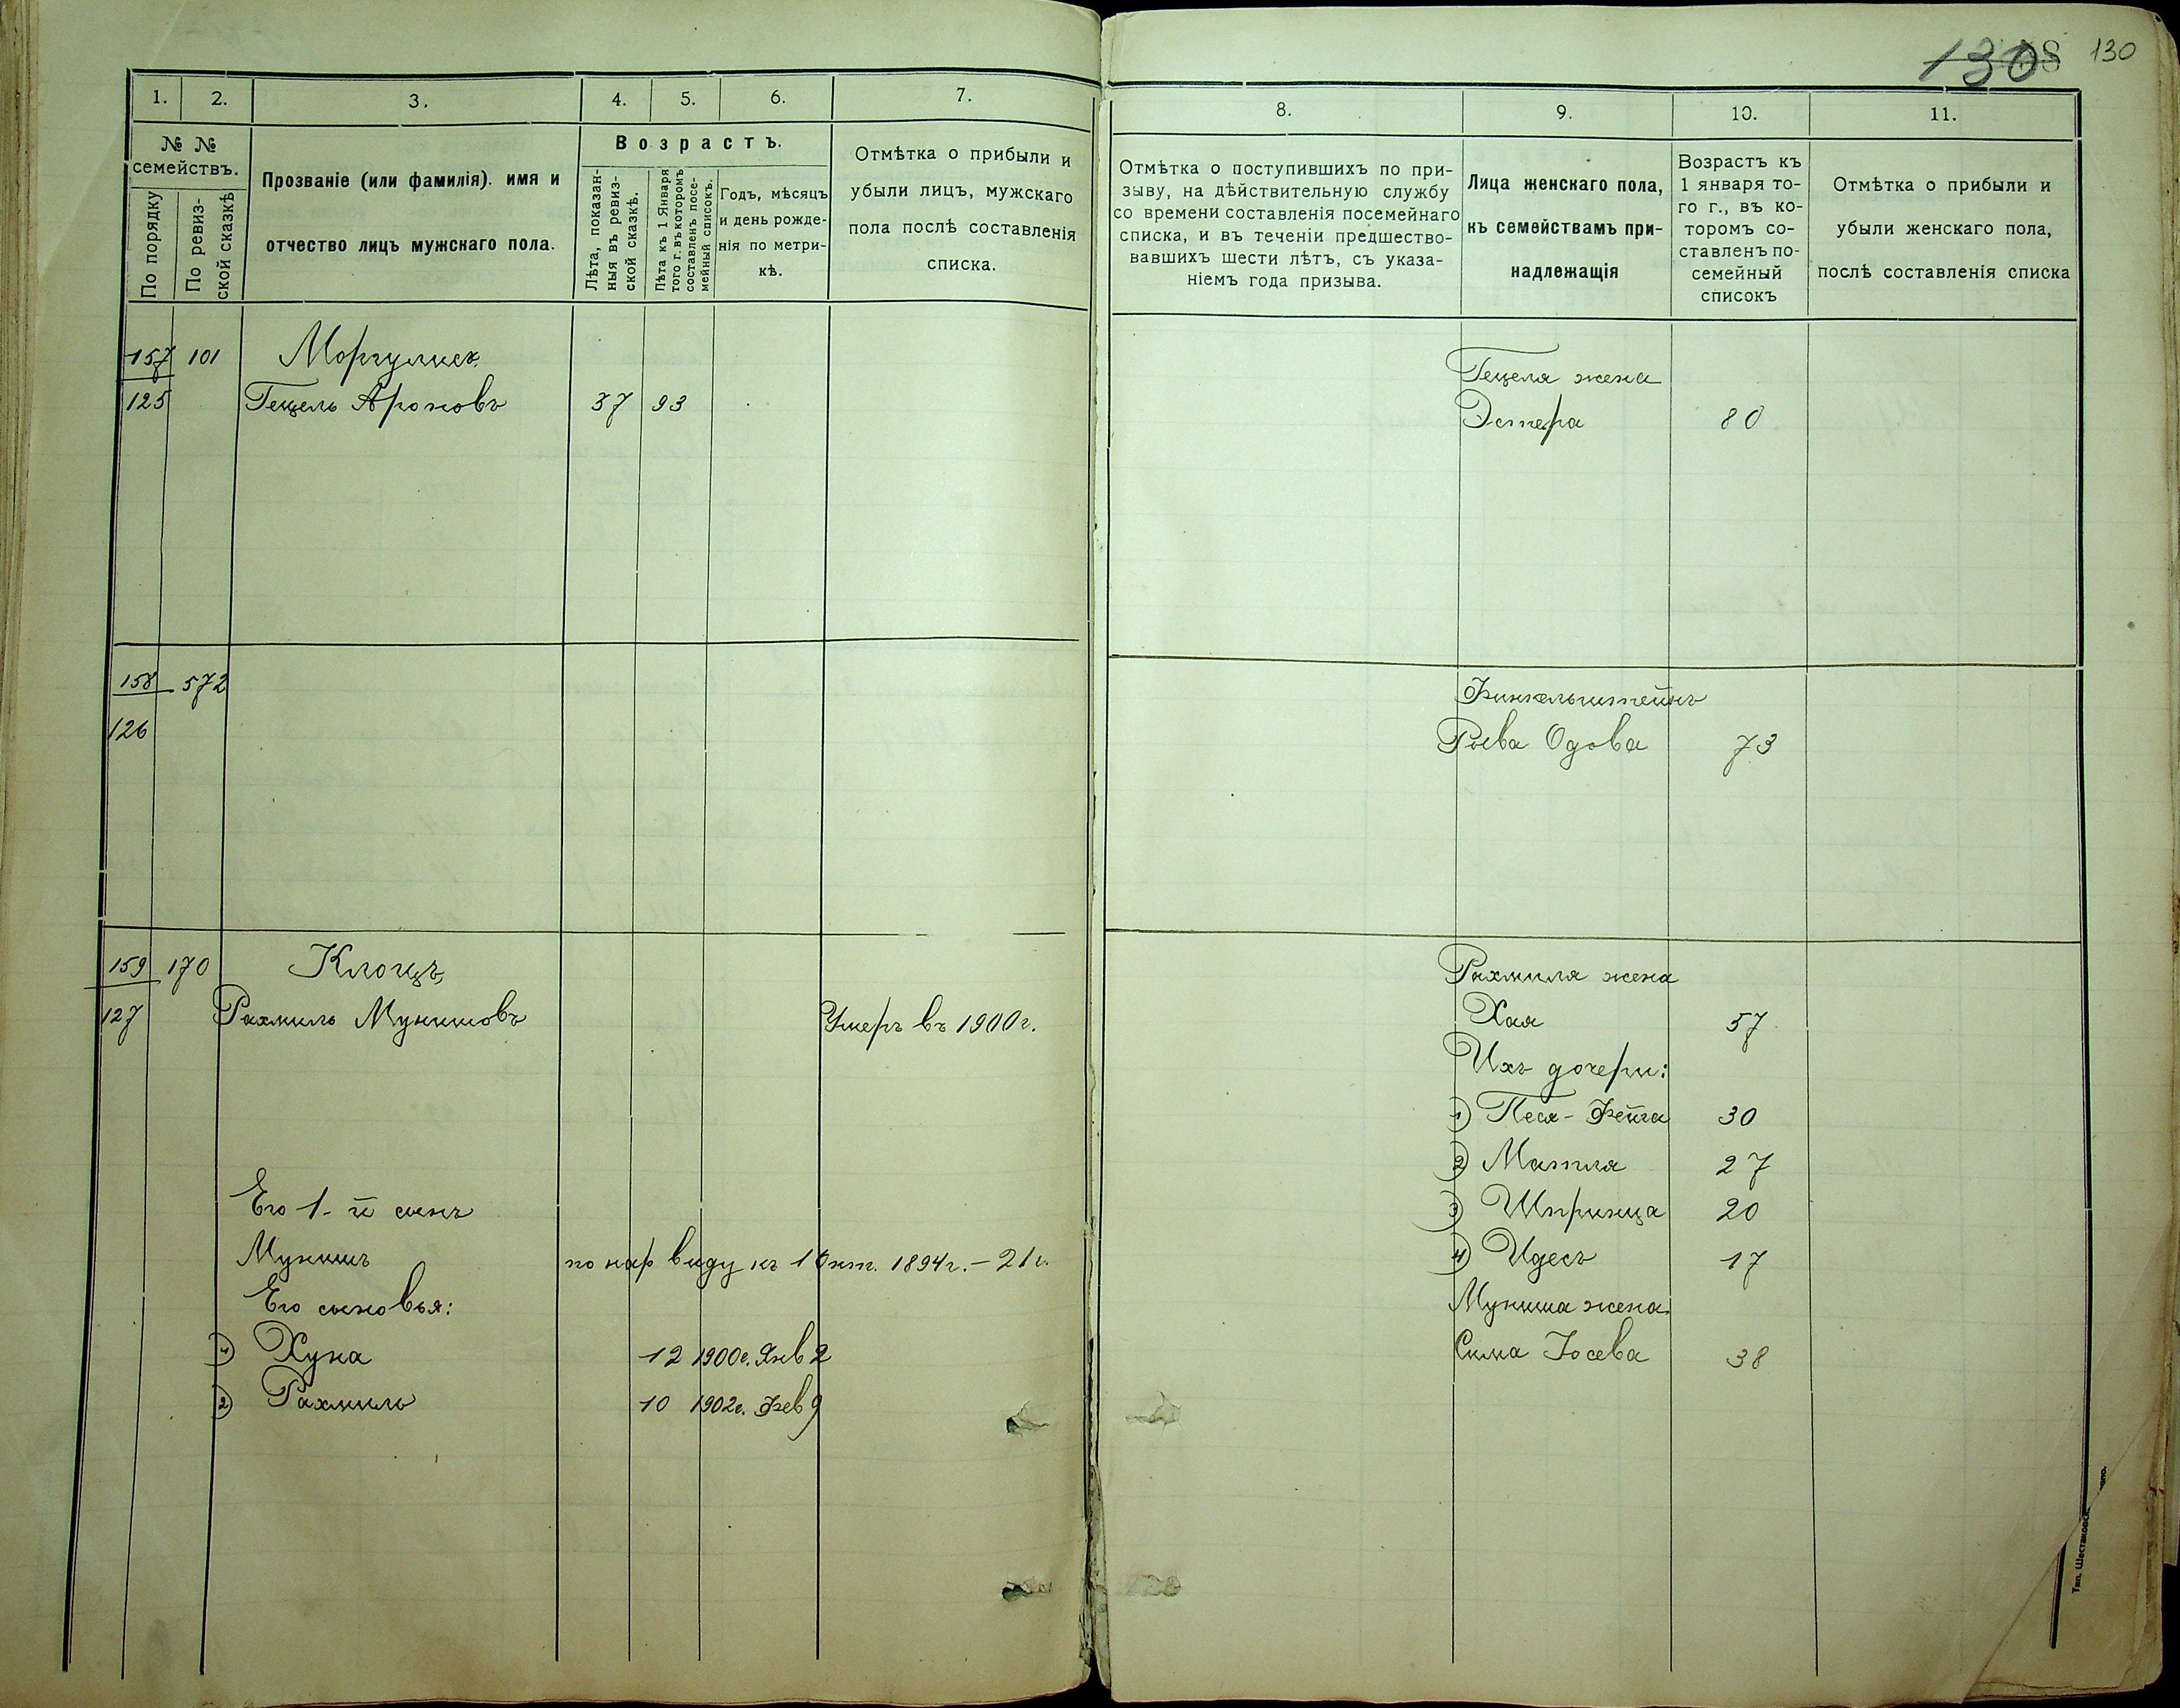 1308 130
1. 2. 3. 4. 5. 6. 7.
№ № семействъ.
По порядку
По ревиз-
ской сказкѣ
Прозваніе (или фамилія). имя и
отчество лицъ мужскаго пола.
Возрастъ.
Лѣта, показан-
ныя въ ревиз-
ской сказкѣ.
Лѣта къ 1 Января
того г. въ которомъ
составленъ посе-
мейный списокъ.
Годъ, мѣсяцъ
и день рожде-
нія по метри-
кѣ.
Отмѣтка о прибыли и
убыли лицъ, мужскаго
пола послѣ составленія
списка.
157 101 Моргулисъ
125 Гецель Ароновъ 37 93
158 572
126
159 170 Клоцъ
127 Рахмиль Мунишовъ Умеръ въ 1900 г.
Его 1-й сынъ
Мунишъ по нар виду къ 1 Окт. 1894 г. - 21 г.
Его сыновья:
1) Хуна 12 1900 г. Янв 2
2) Рахмиль 10 1902 г. Фев 9
8. 9. 10. 11.
Отмѣтка о поступившихъ по при-
зыву, на дѣйствительную службу
со времени составленія посемейнаго
списка, и въ теченіи предшество-
вавшихъ шести лѣтъ, съ указа-
ніемъ года призыва.
Лица женскаго пола,
къ семействамъ при-
надлежащія
Возрастъ къ
1 января то-
го г., въ ко-
торомъ со-
ставленъ по-
семейный
списокъ
Отмѣтка о прибыли и
убыли женскаго пола,
послѣ составленія списка
Гецеля жена
Эстера 80
Финкельштейнъ
Ройва Одова 73
Рахмиля жена
Хая 57
Ихъ дочери:
1) Песя-Фейга 30
2) Матля 27
3) Шпринца 20
4) Идесъ 17
Муниша жена
Сима Іосева 38
Тип. Шестаковск.